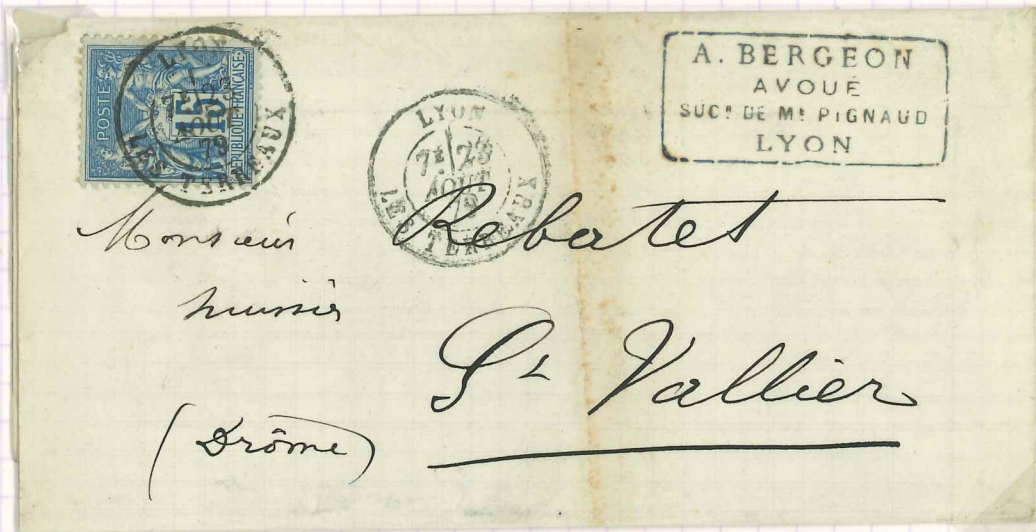 POSTES
15
REPUBLIQUE FRANÇAISE
LYON
AOUT
79
LES TERREAUX
LYON
7E 23
AOUT
79
LES TERREAUX
A. BERGEON
AVOUÉ
SUCR DE ME PIGNAUD
LYON
Monsieur Rebatet
huissier
St Vallier
(Drôme)